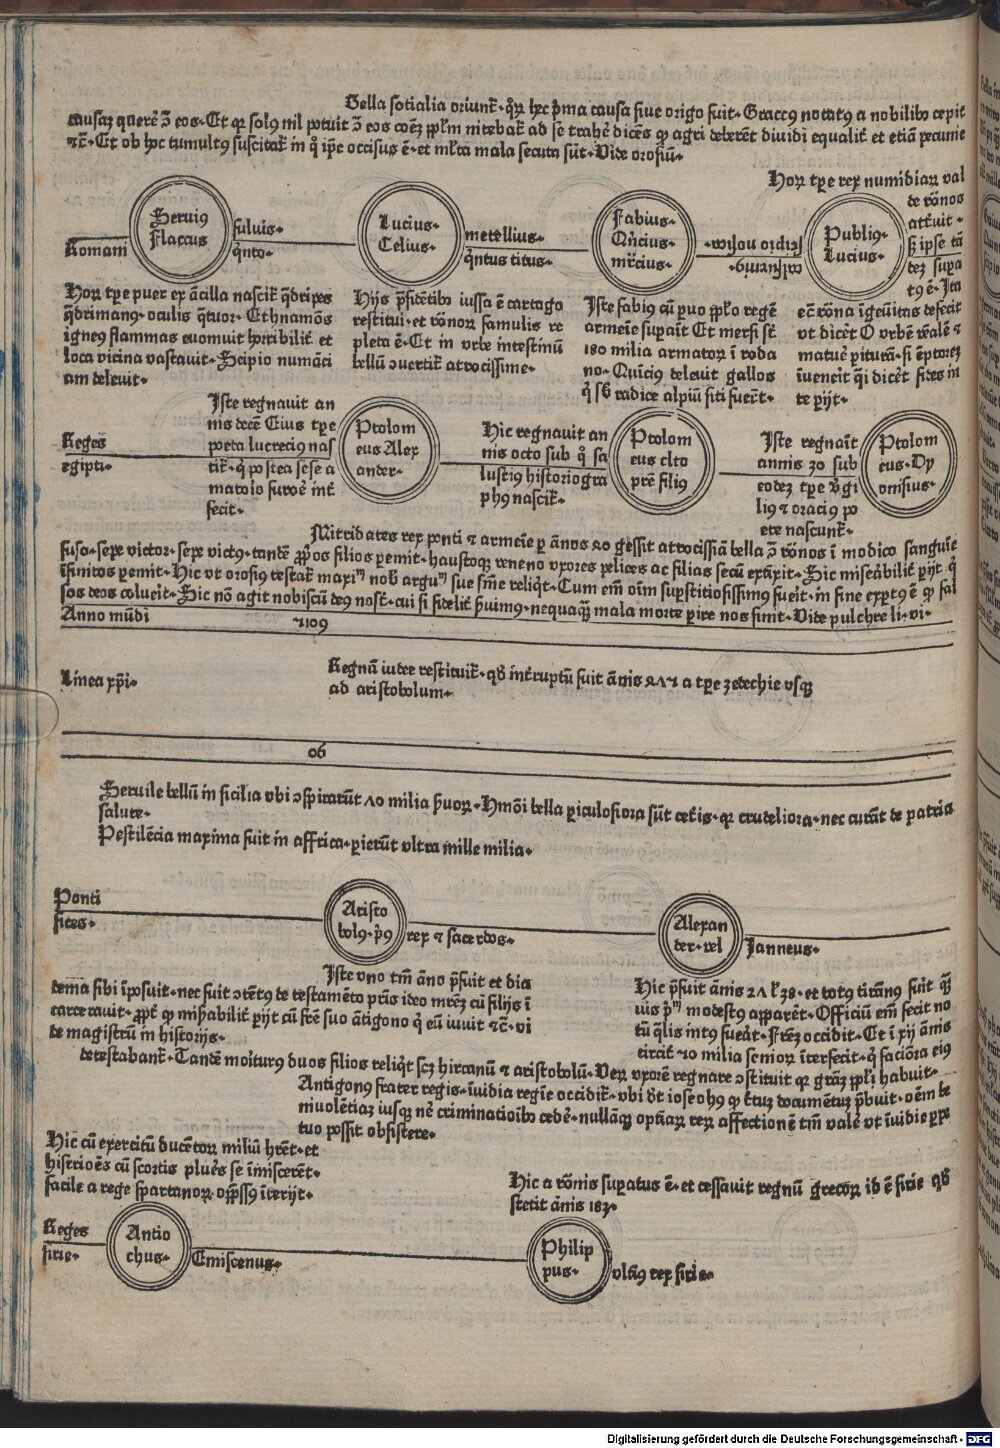 Bella sotialia oriunt᷑. qͦꝝ hec p̄ma causa siue origo fuit. Graccꝰ notatꝰ a nobilibꝰ cepit
causaꝫ querē ↄ̄ eos. Et qꝛ solꝰ nil potuit ↄ̄ eos coēꝫ ppl̄m nitebat᷑ ad se trahē dicēs ꝙ agri deberēt diuidi equalit᷑ et etiā pecunie
⁊c̄. Et ob hoc tumultꝰ suscitat᷑ in qͦ ip̄e occisus ē. et ml̄ta mala secuta sūt. Vide orosiū.
Hoꝝ tꝑe rex numidiaꝝ val
de rōnos
attriuit.
ſꝫ ipse tā
deꝫ supa
tꝰ ē. Ita
Romani
Seruiꝰ
Flaccus
fuluis.
qͥnto.
Lucius.
Celius.
metellius.
qͥntus titus.
Fabius.
Qn̄cius.
mr̄cius.
scipio nosica.
calpurniꝰ.
Publiꝰ.
Lucius.
Hoꝝ tꝑe puer ex ācilla nascit᷑ qͣdripes
qͣdrimanꝰ. oculis qͣtuor. Ethnamōs
igneꝰ flammas euomuit horribilit᷑ et
loca vicina vastauit. Scipio numāci
am deleuit.
Hijs p̄sidētibꝰ iussa ē cartago
restitui. et rōnoꝝ famulis re
pleta ē. Et in vrbe intestinū
bellū ↄuertit᷑ atrocissime.
Iste fabiꝰ cū puo pplo regē
armeīe supaūt Et mersi st̄
180 milia armatoꝝ ī roda
no. Quīciꝰ deleuit gallos
qͥ sb̄ radice alpiū siti fuer̄t.
ec̄ rōna īgeūitas defecit
vt dicēt O vrbē vēalē ⁊
matuē piturā. si ēptoreꝫ
īuencit qͣi dicēt fides in
te pijt.
Reges
egipti.
Iste regnauit an
nis decē Eius tꝑe
poeta lucreciꝰ nas
tit᷑. qͥ postea sese a
matoꝛio furoē int̄
fecit.
Ptolom
eus Alex
ander.
Hic regnauit an
nis octo sub qͦ sa
lustiꝰ historiogra
phꝰ nascit᷑.
Ptolom
eus clto
prē filiꝰ
Iste regnaūt
annis 30 sub
eodeꝫ tꝑe v̄gi
liꝰ ⁊ oraciꝰ po
ete nascunt᷑.
Ptolom
eus. Dy
onisius.
Mitridates rex ponti ⁊ armeīe ꝑ ānos 40 gessit atrocissiā bella ↄ̄ rōnos ī modico sanguīe
fuso. sepe victor. sepe victꝰ. tandē ꝓpͥos filios pemit. haustoqꝫ veneno vxores pelices ac filias secū extīxit. Sic miseabilit᷑ pijt qͥ
īfinitos pemit. Hic vt orosiꝰ testat᷑ maxiᵐ nob̄ arguᵐ sue sn̄ie reliqͥt. Cum em̄ oīm supstitiosissimꝰ fueit. in fine exptꝰ ē ꝙ fal
sos deos colueit. Sic nō agit nobiscū deꝰ nost̄. cui si fidelit᷑ p̄uimꝰ. nequaqͣꝫ mala morte pire nos sinit. Vide pulchre li. vi.
Anno mūdi
⁊109
Linea xp̄i.
Regnū iudee restituit᷑. qͩ int̄ruptū fuit ānis 4Λ⁊ a tꝑe zedechie vsqꝫ
ad aristobolum.
06
Seruile bellū in sicilia vbi ↄspirarūt Λ0 milia p̄uoꝝ. Hmōi bella piculosiora sūt cet̄is. qꝛ crudeliora. nec curāt de patria
salute.
Pestilēcia maxima fuit in affrica. pierūt vltra mille milia.
Ponti
fices.
Aristo
bolꝰ. p̄ꝰ
rex ⁊ sacerdos.
Alexan
der. vel
Janneus.
Iste vno tm̄ āno p̄fuit et dia
dema sibi īposuit. nec fuit ↄtētꝰ de testamēto pr̄is ideo mr̄eꝫ cū filijs ī
carcerauit. ꝓpt̄ ꝙ mis̄abilit᷑ pijt cū fr̄e suo ātigono qͣ eū iuuit ⁊c̄. vi
de magistrū in historijs.
Hic p̄fuit ānis 2Λ ł 38. et totꝰ tirānꝰ fuit qͣꝫ
uis pͥᵐ modestꝰ appareēt. Officiū em̄ fecit no
tū qͣlis intꝰ fueāt. Fr̄eꝫ occidit. Et ī xij ānis
circit᷑ ⁊0 milia senioꝝ īterfecit. qͥ faciōra eiꝰ
detestabant᷑. Tandē moīturꝰ duos filios reliqͥt scꝫ hircanū ⁊ aristobolū. Veꝝ vxorē regnare ↄstituit qꝛ grāꝫ ppl̄i habuit.
Antigonꝰ frater regis. iuidia regīe occidit᷑. vbi dr̄ iosephꝰ ꝙ c̄tuꝫ documētuꝫ p̄buit. oēm be
niuolētiaꝫ iusqꝫ nē criminatioībꝰ cedē. nullāqꝫ optīaꝫ reꝝ affectionē tm̄ valē vt īuidie ꝑpe
tuo possit obsistere.
Hic cū exercitū ducētoꝝ miliū hr̄et. et
histrioēs cū scortis plues se īmiscerēt.
facile a rege spartanoꝝ opp̄ssꝰ īterijt.
Hic a rōnis supatus ē. et cessauit regnū grecoꝝ id ē sirie qͩ
stetit ānis 183.
Reges
sirie.
Antio
chus.
Emiscenus.
Philip
pus.
vltīꝰ rex sirie.
Digitalisierung gefördert durch die Deutsche Forschungsgemeinschaft - DFG